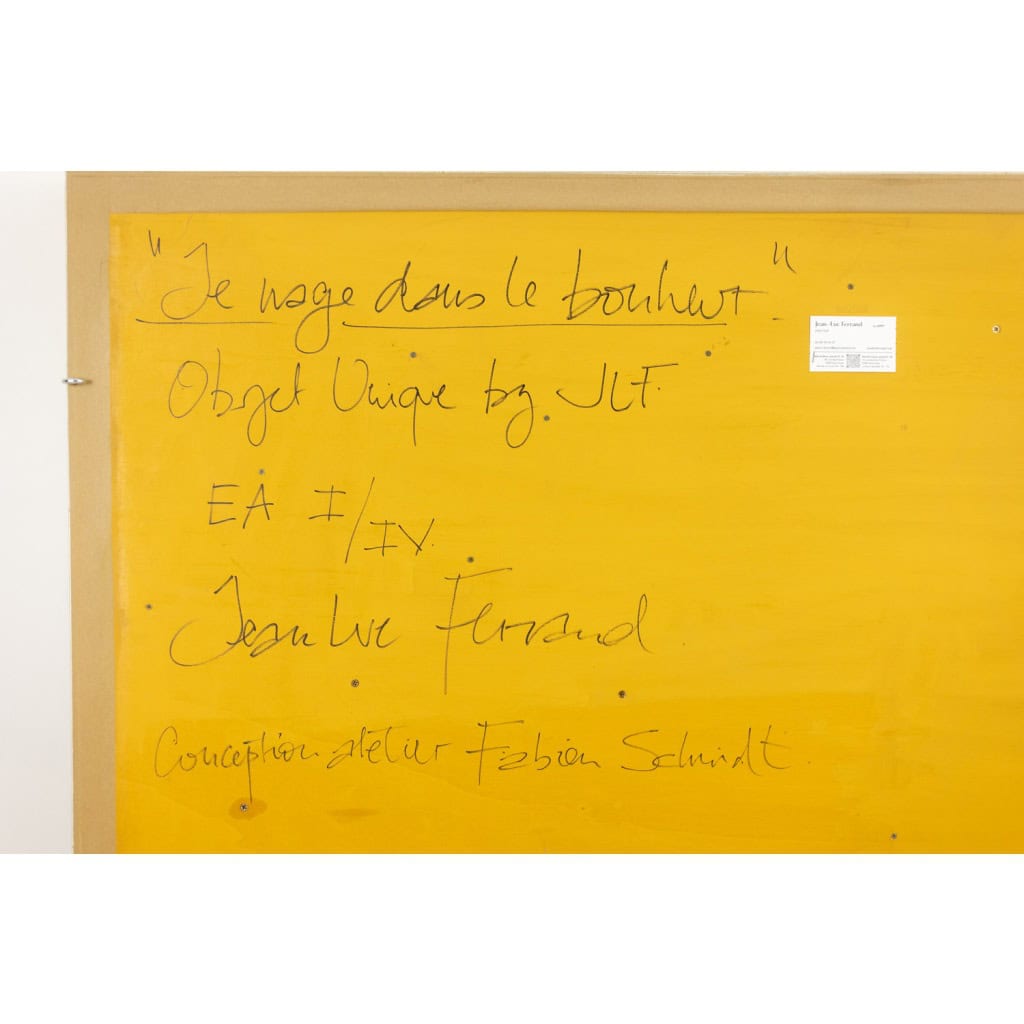 "Je nage dans le bonheur"
Objet Unique by JLF.
EA I/IV.
Jean Luc Ferrand.
Conception atelier Fabien Schmidt.
Jean-Luc Ferrand